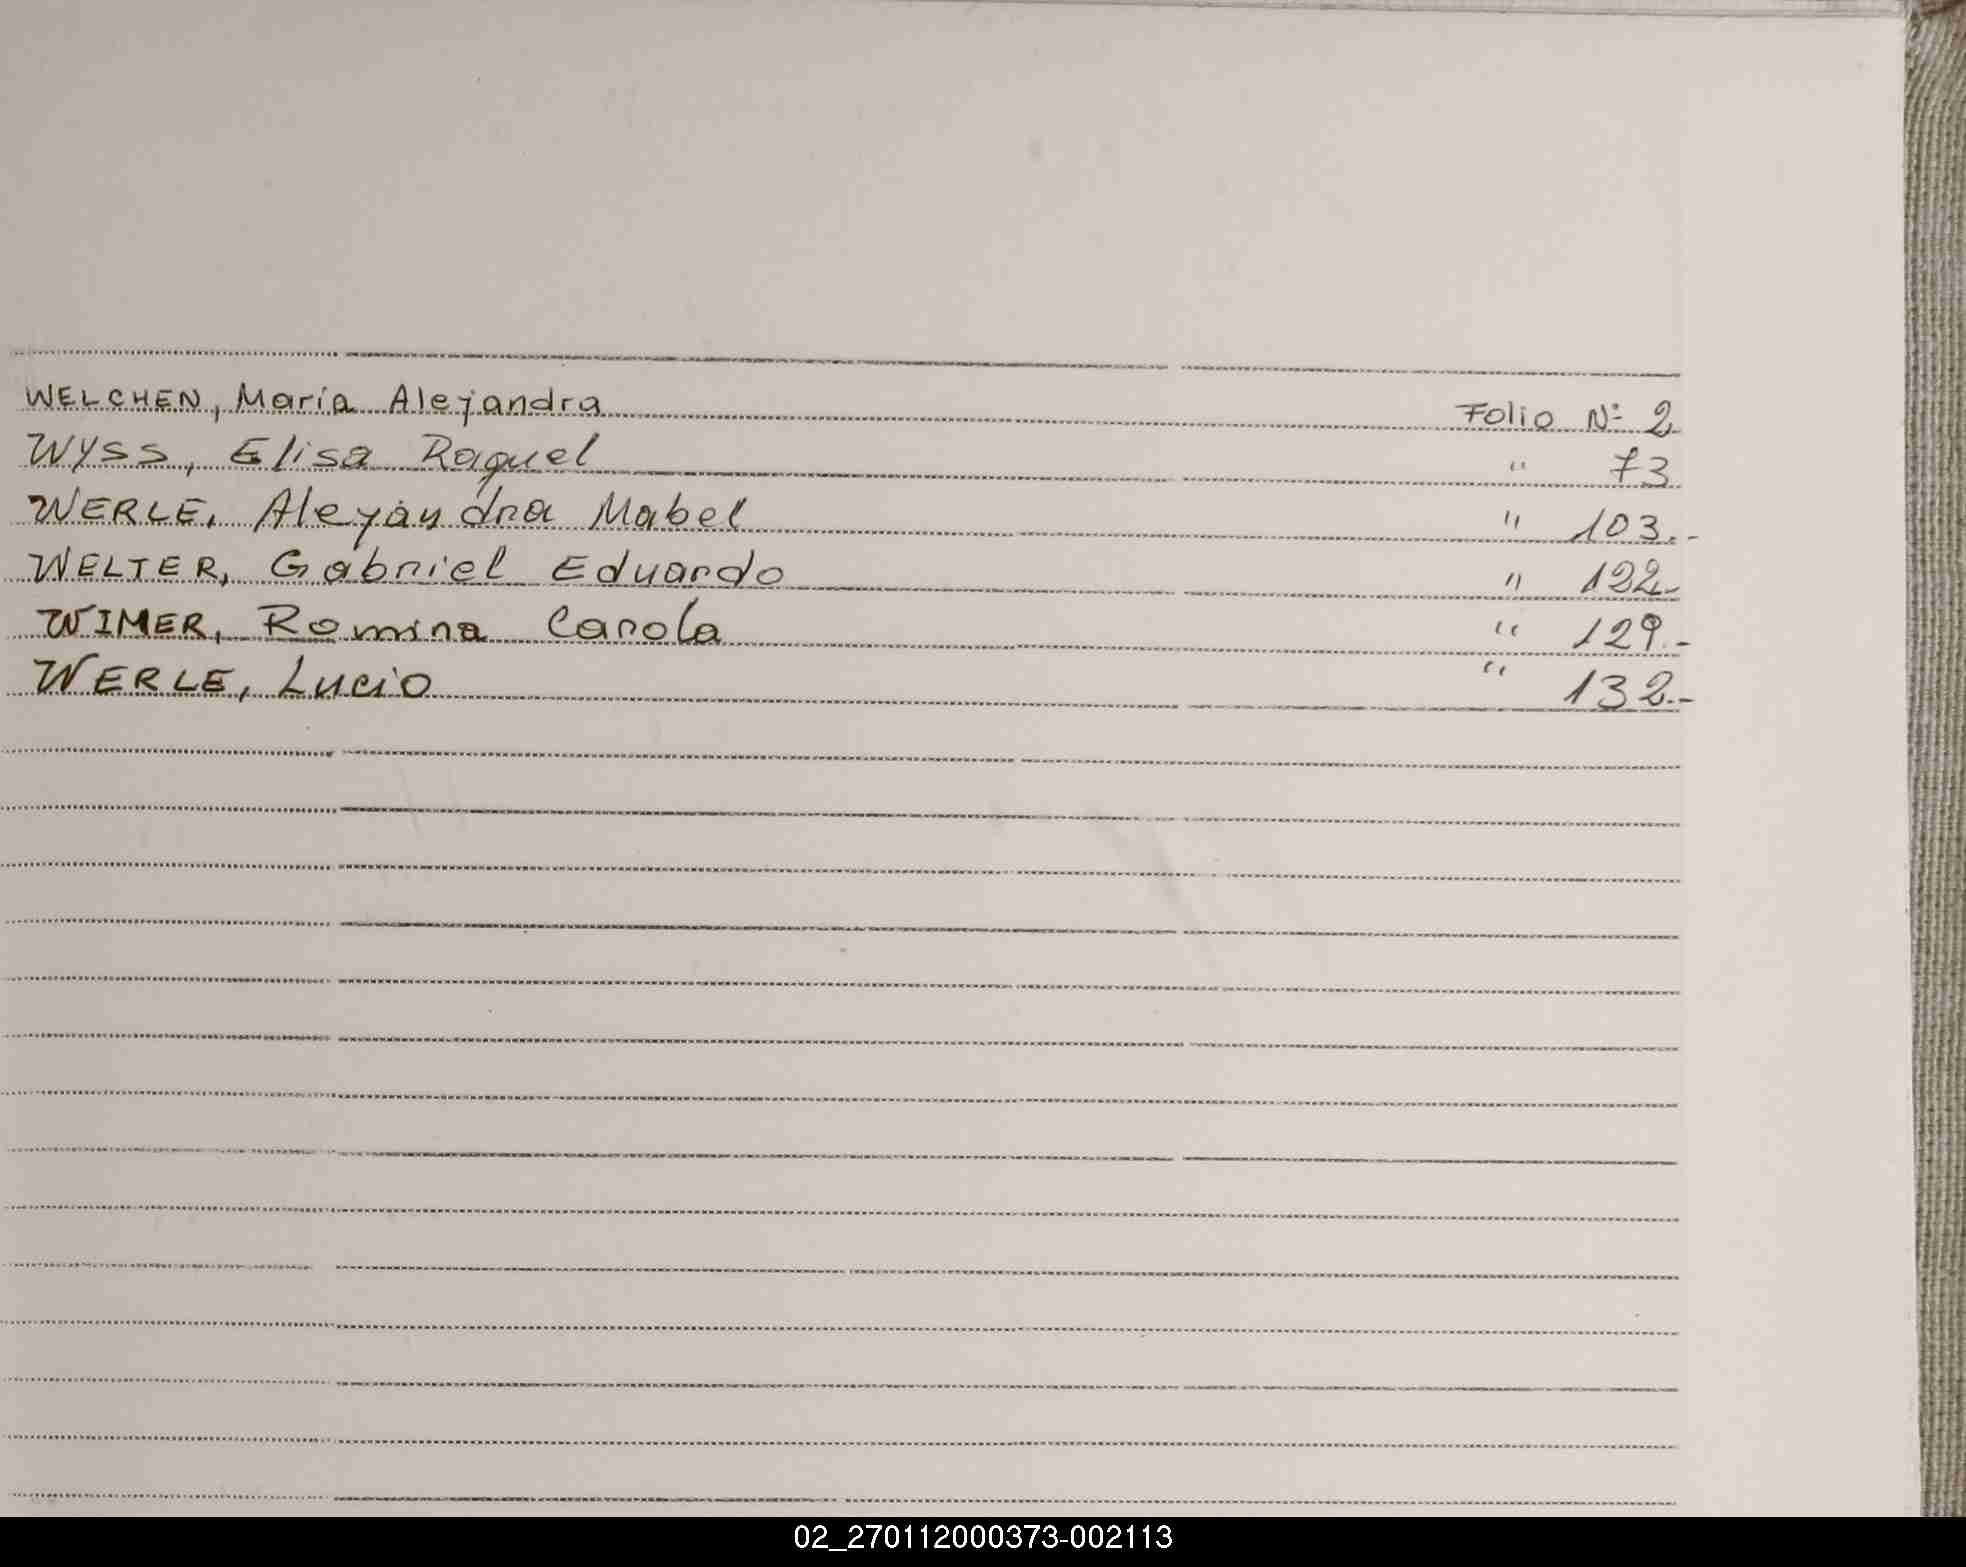 WELCHEN, María Alejandra Folio Nº 2
WYSS, Elisa Raquel " 73
WERLE, Aleyandra Mabel " 103.-
WELTER, Gabriel Eduardo " 122-
WIMER, Romina Carola " 129.-
WERLE, Lucio " 132.-
02_270112000373-002113